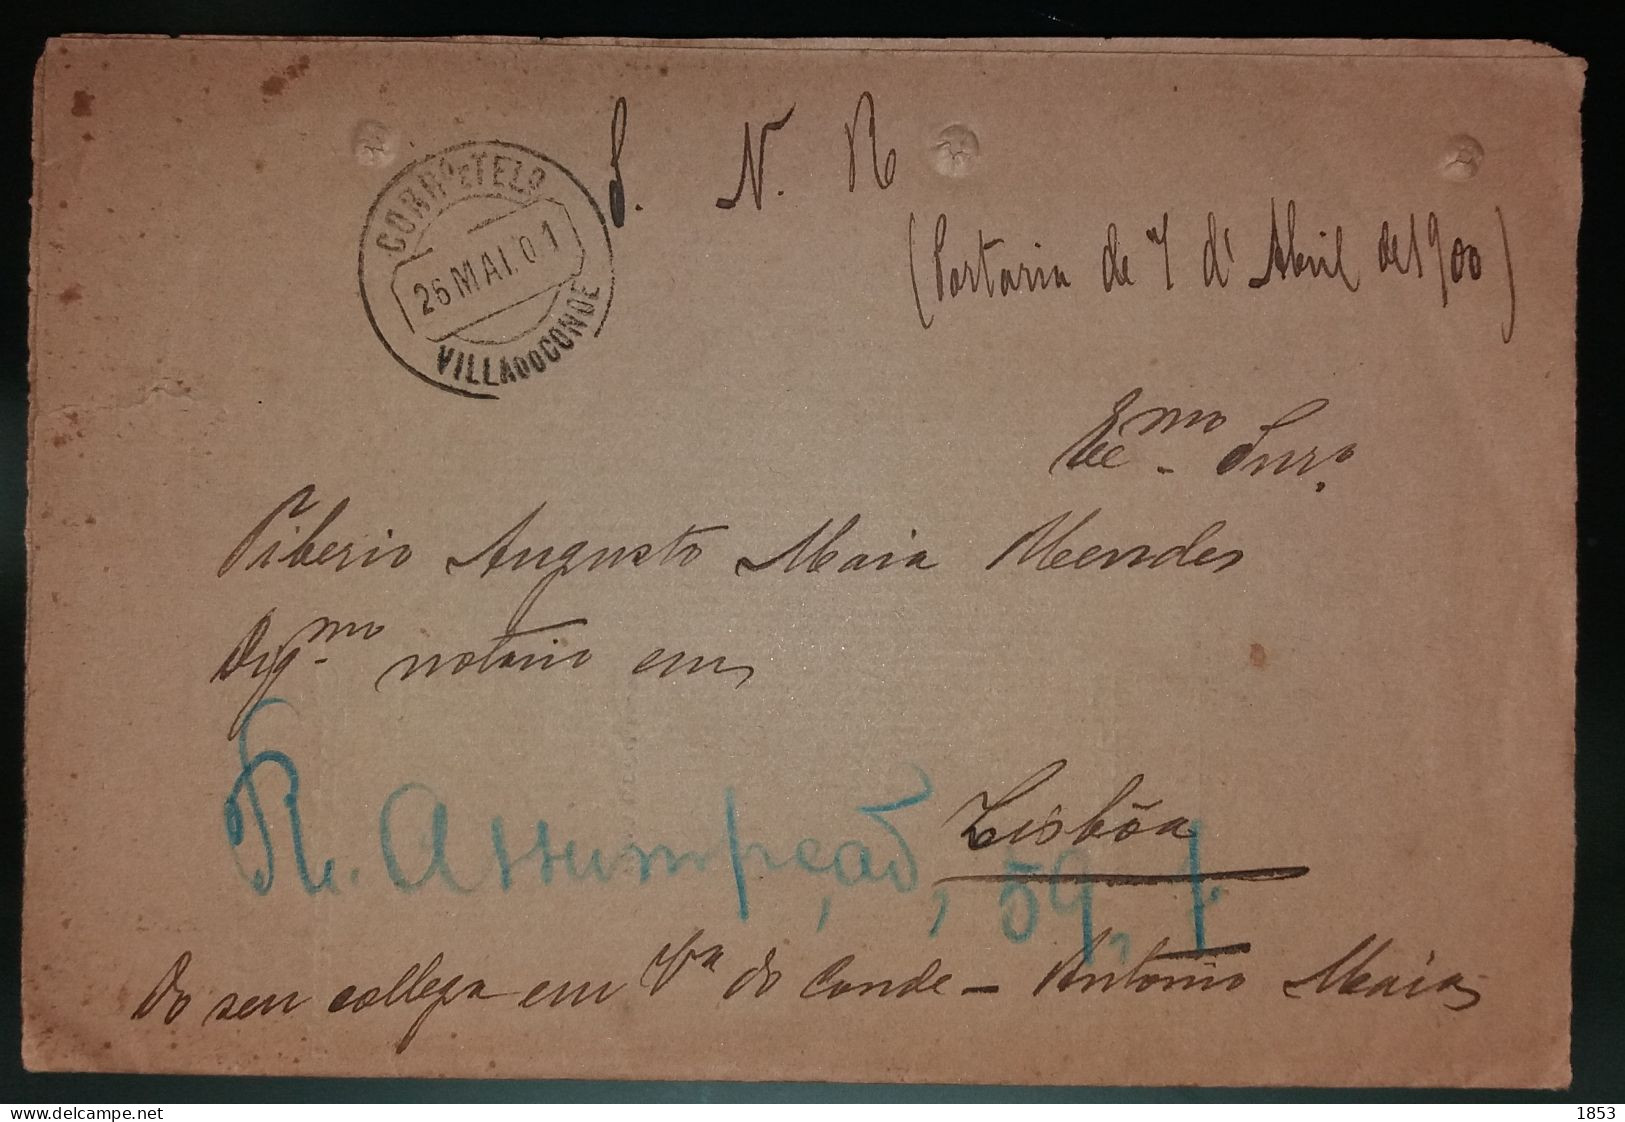 CORRº E TELº
26 MAI. 01
VILLA DO CONDE
S. N. R
(Portaria de 7 d'Abril de 1900)
Exmo Snr.
Tiberio Augusto Maia Mendes
Digmo notario em
Lisbôa
R. Assumpção, 59, 1.
Do seu collega em Va do Conde - Antonio Maia
delcampe.net
1853